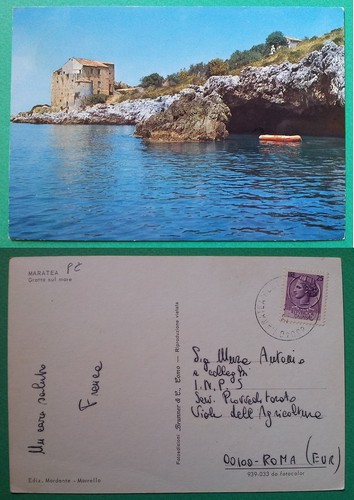 MARATEA PZ
Grotte sul mare
Un caro saluto
Franca
Ediz. Mordente - Maratea
Fotoedizioni Brunner & C. Como - Riproduzione vietata
Sig. Muzza Antonio
e colleghi
I.N.P.S
Serv. Provveditorato
Viale dell'Agricoltura
00100-ROMA (EUR)
939-033 da fotocolor